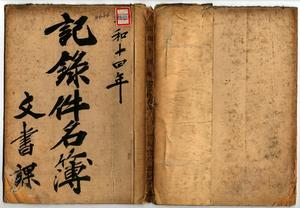 和十四年
記錄件名簿
文書課